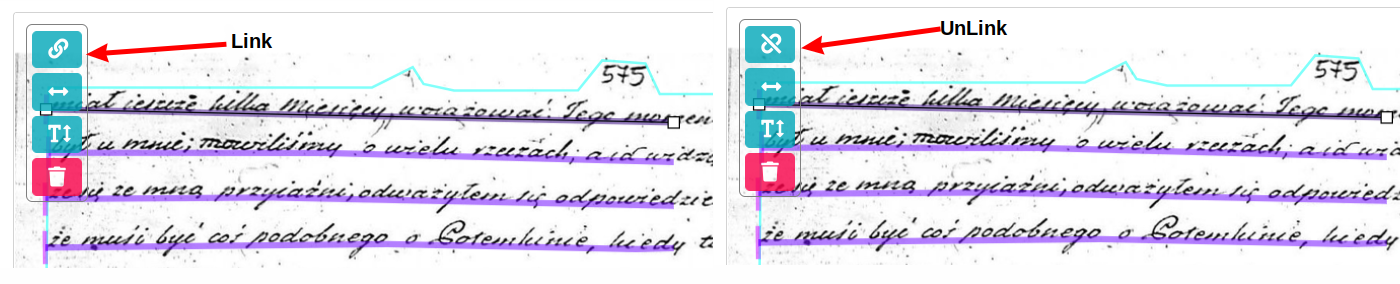 Link
UnLink
575
miał jeszcze kilka miesięcy wojażować. Tego
był u mnie; mówiliśmy o wielu rzeczach; a id widz
się ze mną przyjaźni, odważyłem się odpowiedzie
że musi być coś podobnego o Potemkinie, kiedy t
575
miał jeszcze kilka miesięcy wojażować. Tego
był u mnie; mówiliśmy o wielu rzeczach; a id widz
się ze mną przyjaźni, odważyłem się odpowiedzi
że musi być coś podobnego o Potemkinie, kiedy